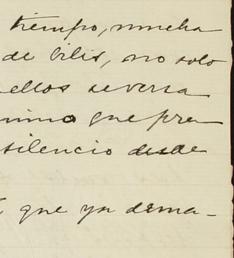 tiempo, mucha
de bilis, no solo
ellos se versa
nimo que pre
silencio desde
que ya dema-